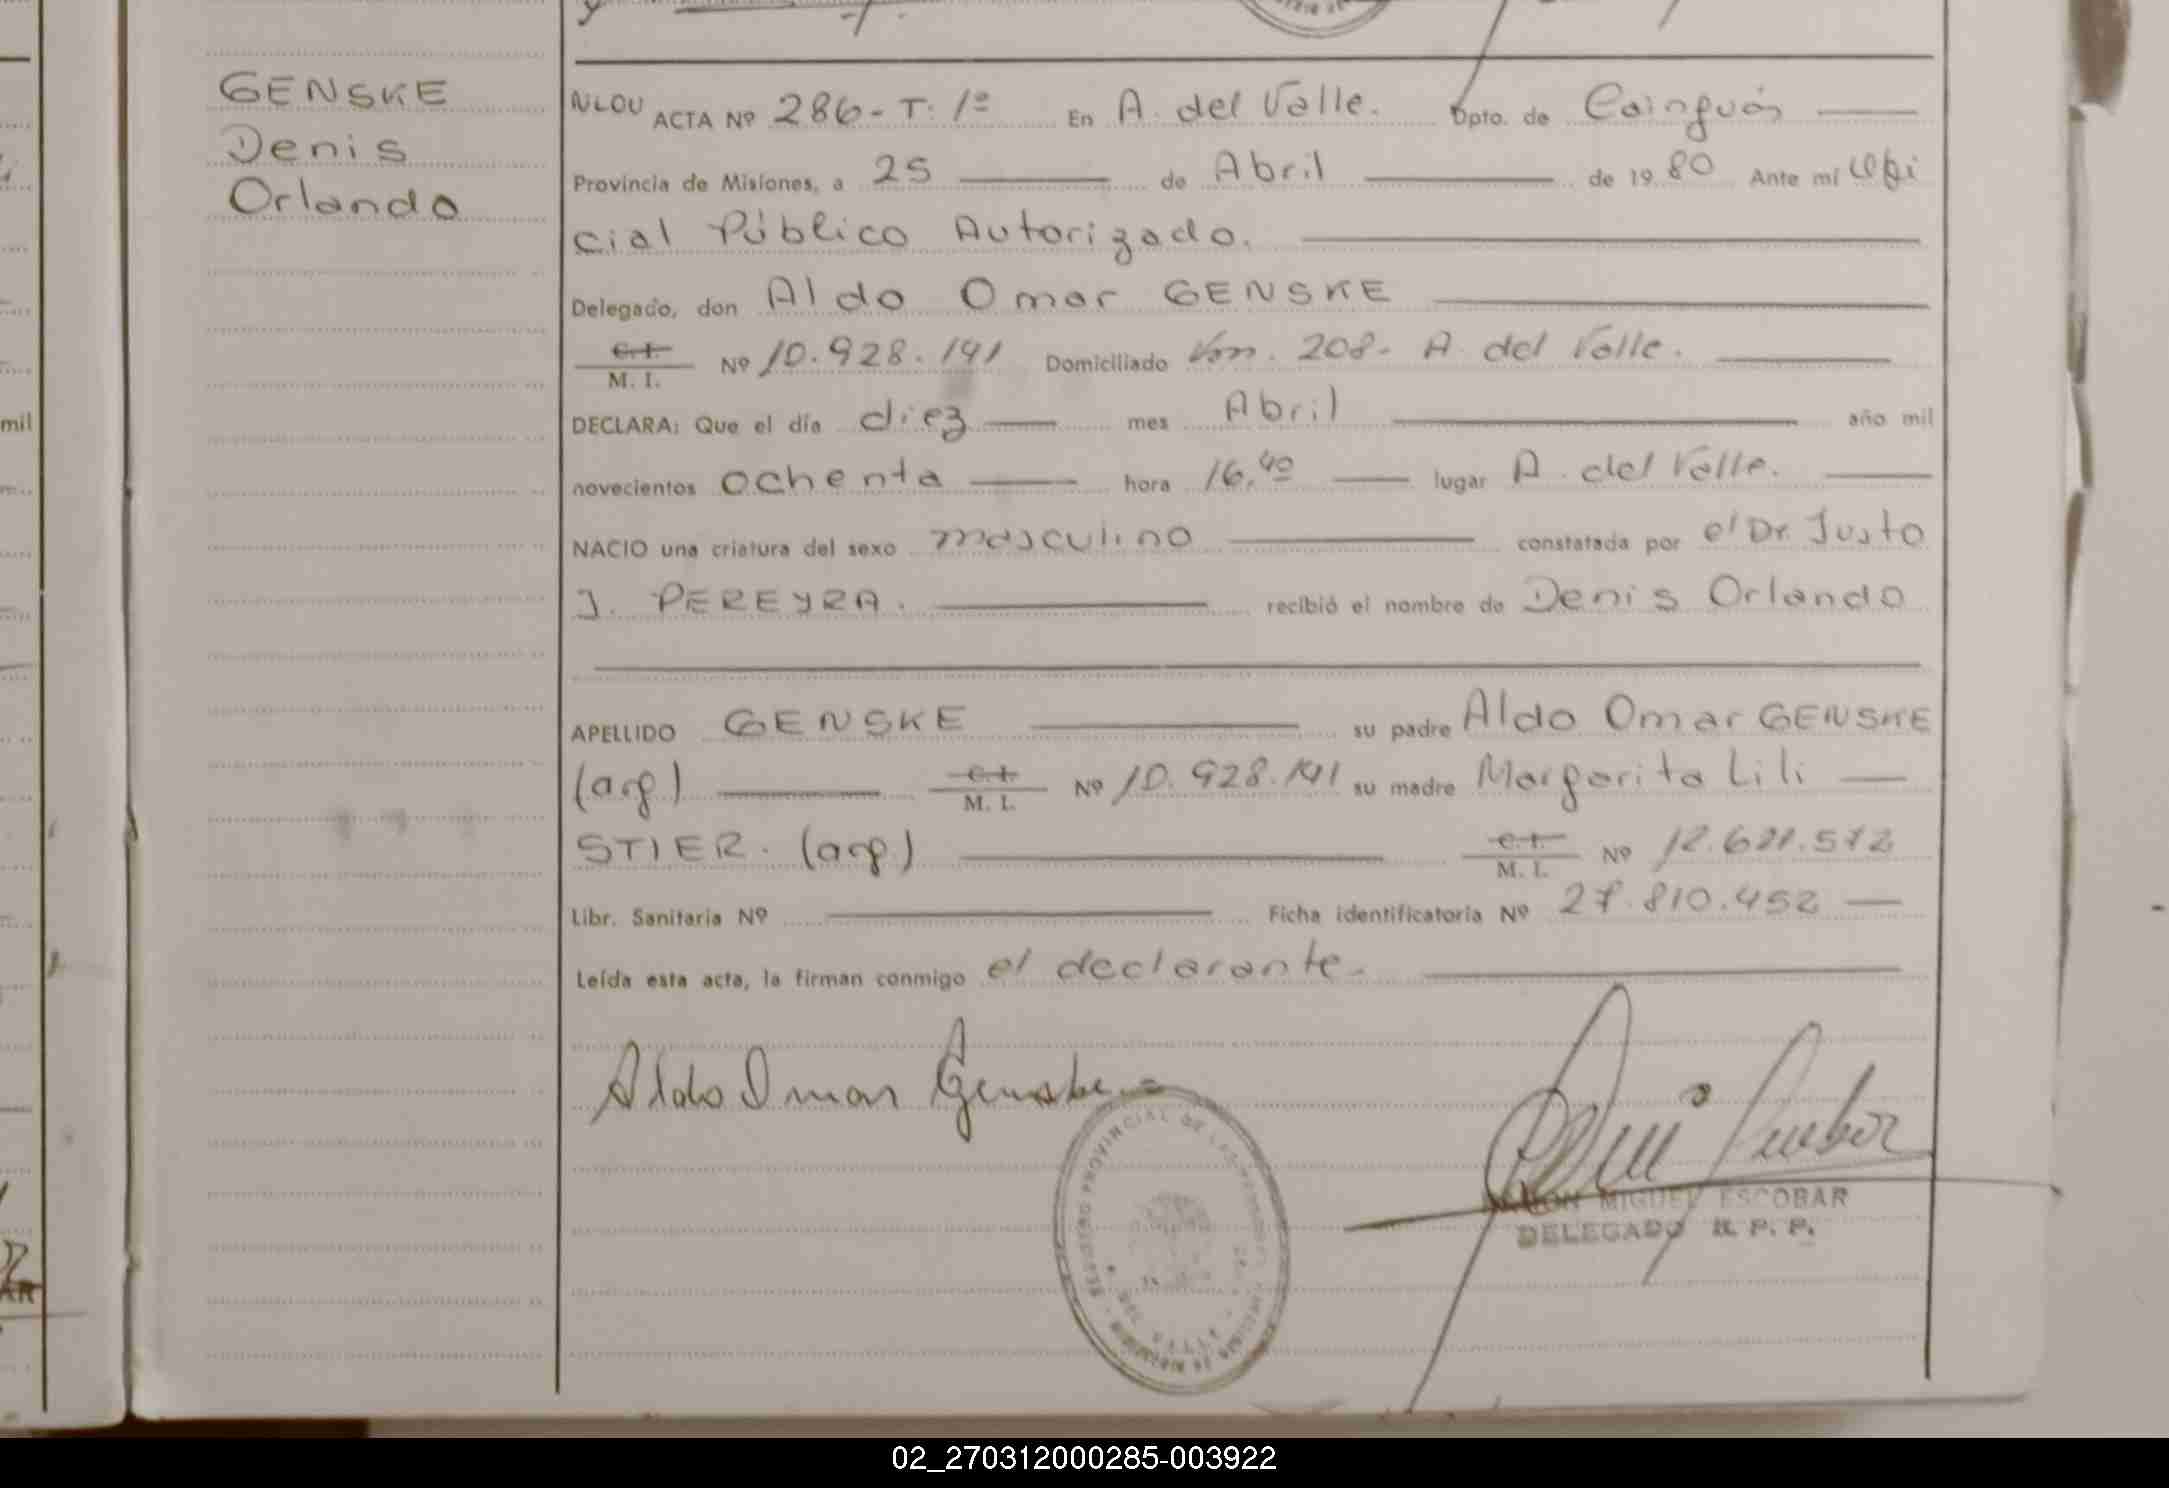 GENSKE
Denis
Orlando
ACTA Nº 286-T: 1º En A. del Valle. Dpto. de Cainguás
Provincia de Misiones, a 25 de Abril de 1980 Ante mí Ofi
cial Público Autorizado.
Delegado, don Aldo Omar GENSKE
C.I. M. I. Nº 10.928.191 Domiciliado 208- A. del Valle.
DECLARA: Que el día diez mes Abril año mil
novecientos ochenta hora 16,40 lugar A. del Valle.
NACIO una criatura del sexo masculino constatada por el Dr. Justo
J. PEREYRA. recibió el nombre de Denis Orlando
APELLIDO GENSKE su padre Aldo Omar GENSKE
(arg) C.I. M. I. Nº 10.928.191 su madre Margarita Lili
STIER. (arg) C.I. M. I. Nº
Libr. Sanitaria Nº Ficha identificatoria Nº 27.810.452
Leída esta acta, la firman conmigo el declarante.
Aldo Omar Genske
REGISTRO PROVINCIAL DE LAS PERSONAS
RAMON MIGUEL ESCOBAR
DELEGADO R. P. P.
mil
02_270312000285-003922